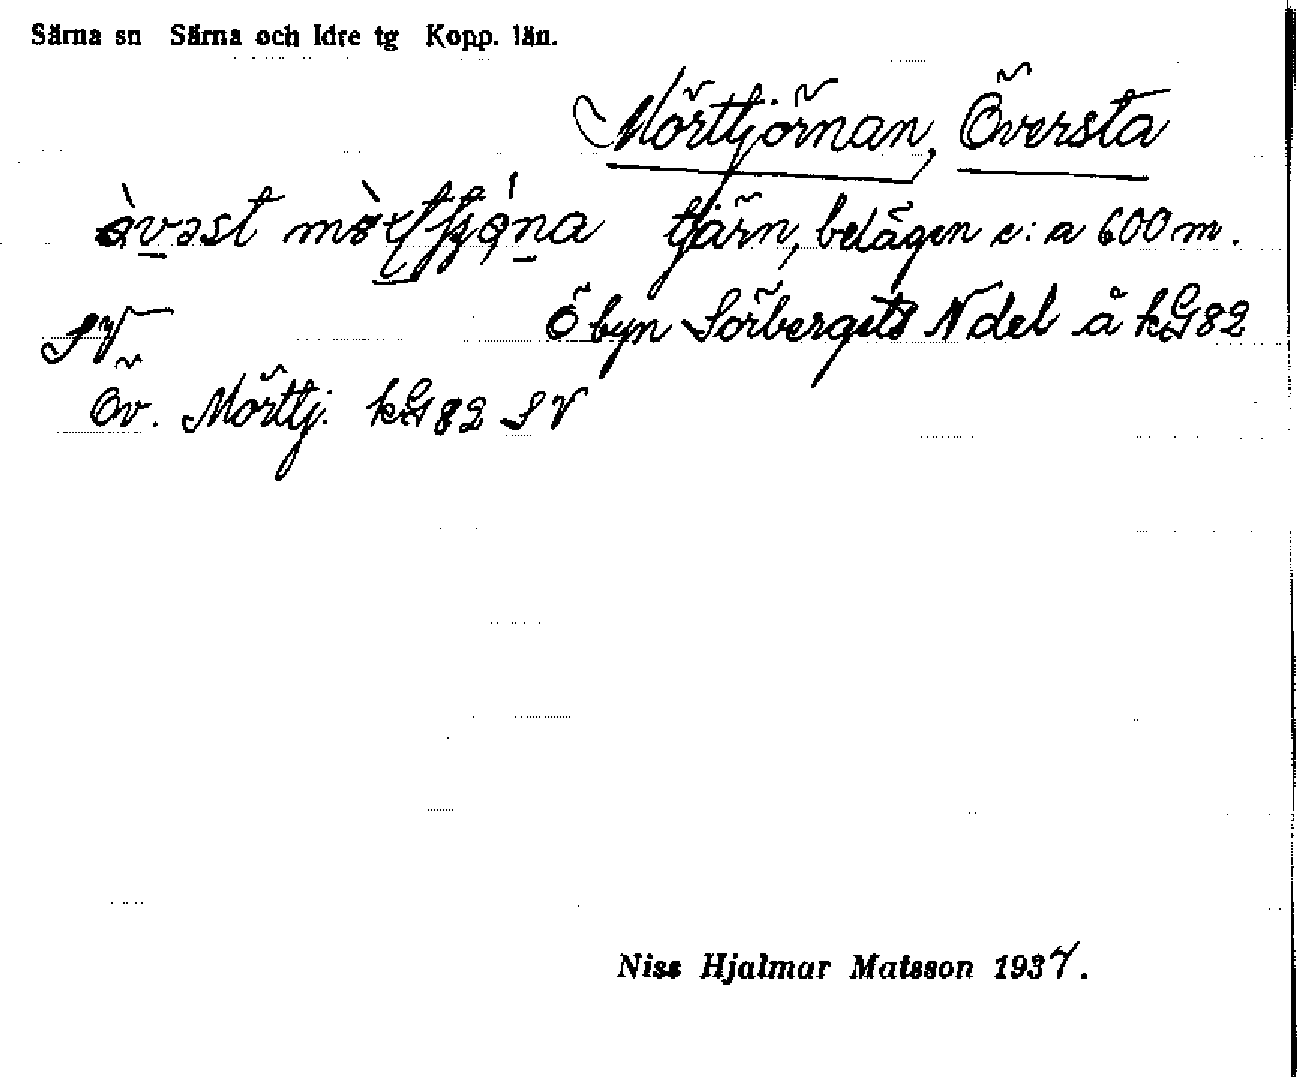 Särna sn Särna och Idre tg Kopp. län.
Mörttjörnan, Översta
tjärn, belägen c:a 600 m.
SV
Ö byn Sörbergets N del å kG82
Öv. Mörttj. kG82 SV
Niss Hjalmar Matsson 1937.